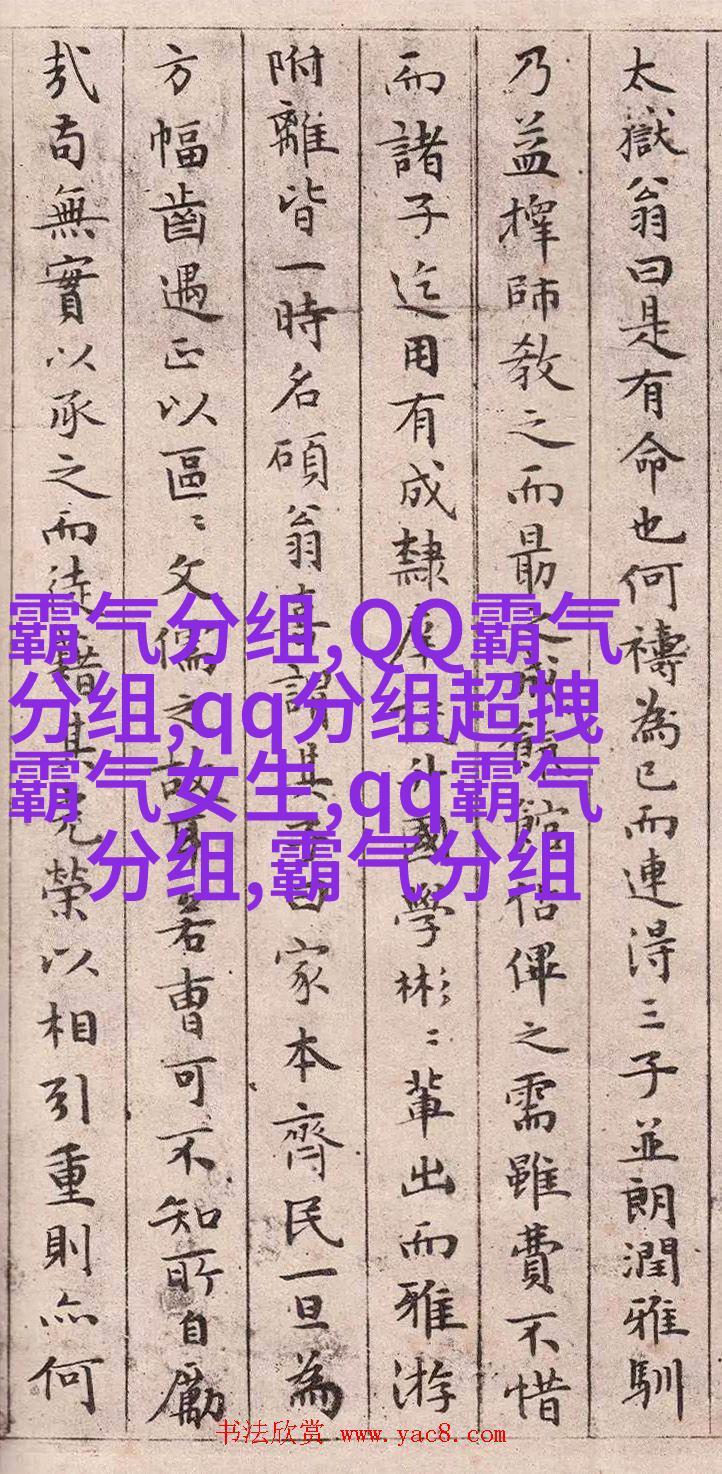 太嶽翁曰是有命也何禱為已而連得三子並朗潤雅馴
乃益擇師教之而最之成館佔俾之需雖費不惜
而諸子迄用有成隸國學彬〻輩出而雅游
附離皆一時名碩翁喜謂其曰家本齊民一旦為
方幅齒遇正以區〻文儒之故耳若曹可不知所自勵
哉苟無實以承之而徒藉其寵榮以相引重則亦何
霸气分组,QQ霸气
分组,qq分组超拽
霸气女生,qq霸气
分组,霸气分组
书法欣赏 www.yac8.com